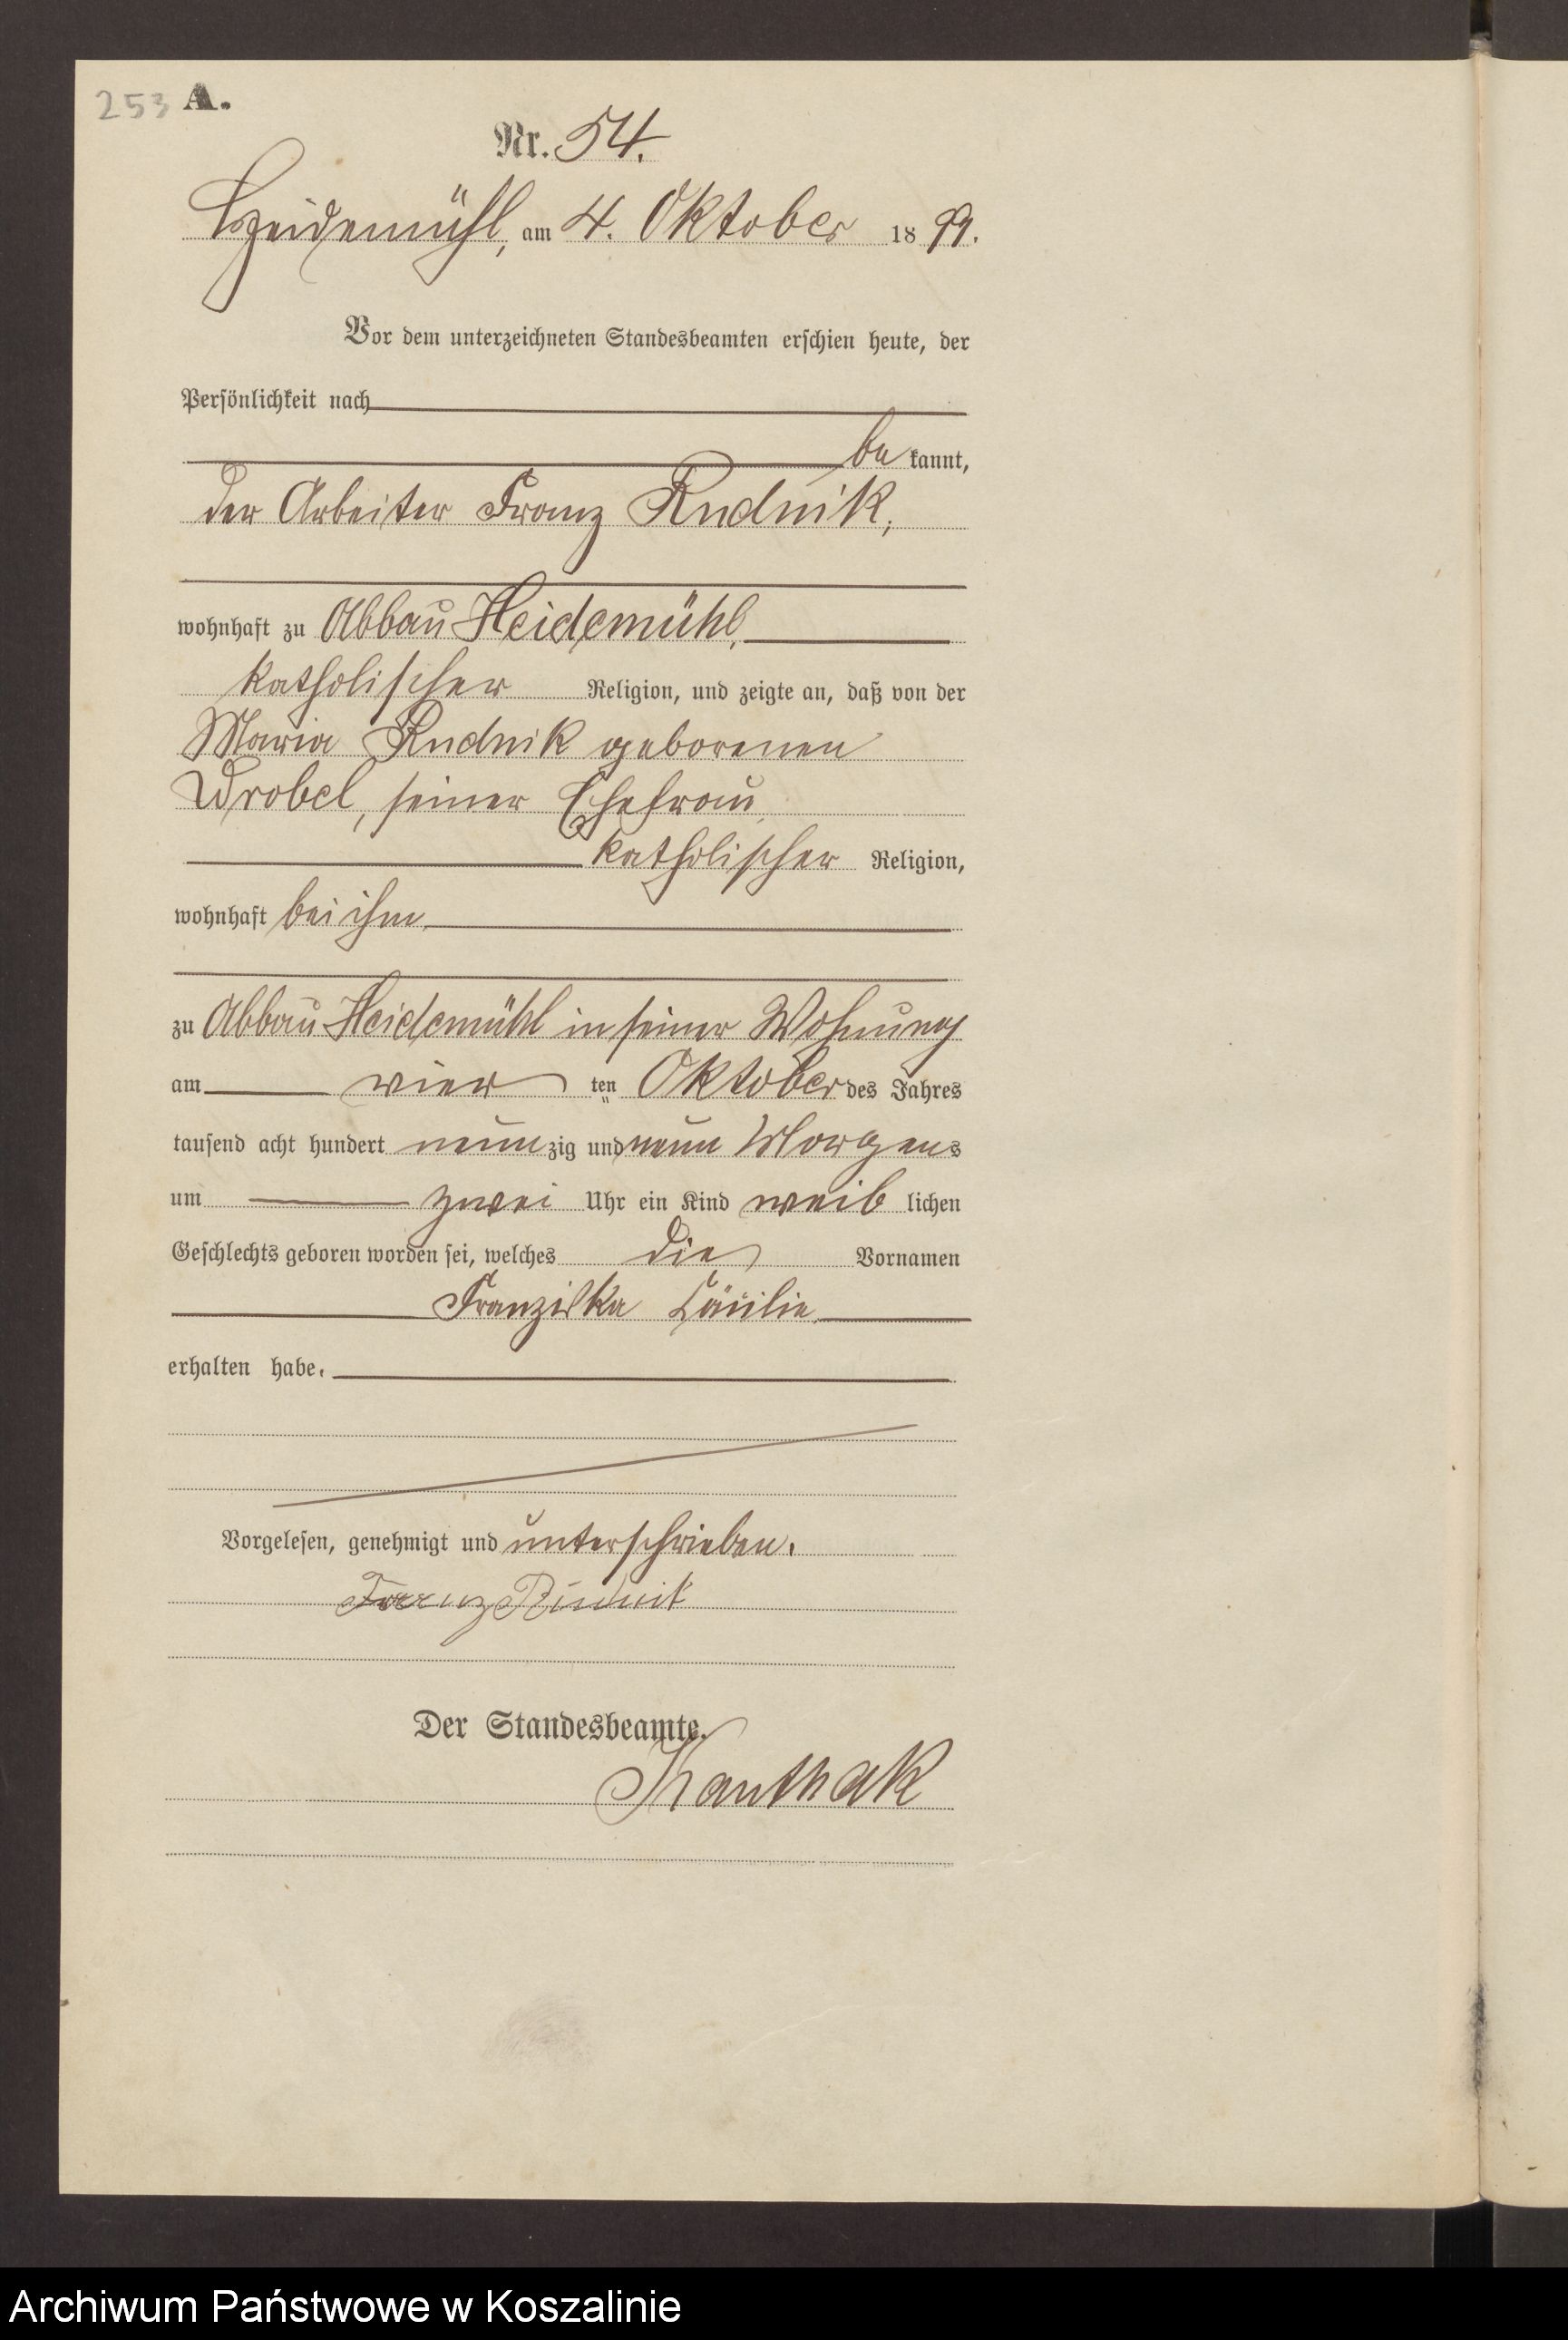 253 A.
Nr. 54.
Heidemühl, am 4. Oktober 1899.
Vor dem unterzeichneten Standesbeamten erschien heute, der
Persönlichkeit nach
be kannt,
der Arbeiter Franz Rudnik,
wohnhaft zu Abbau Heidemühl,
katholischer Religion, und zeigte an, daß von der
Maria Rudnik geborenen
Wrobel, seiner Ehefrau
katholischer Religion,
wohnhaft bei ihm,
zu Abbau Heidemühl in seiner Wohnung
am vier ten Oktober des Jahres
tausend acht hundert neunzig und neun Morgens
um zwei Uhr ein Kind weib lichen
Geschlechts geboren worden sei, welches die Vornamen
Franziska Cäcilie
erhalten habe.
Vorgelesen, genehmigt und unterschrieben.
Franz Rudnik
Der Standesbeamte.
Kanthak
Archiwum Państwowe w Koszalinie